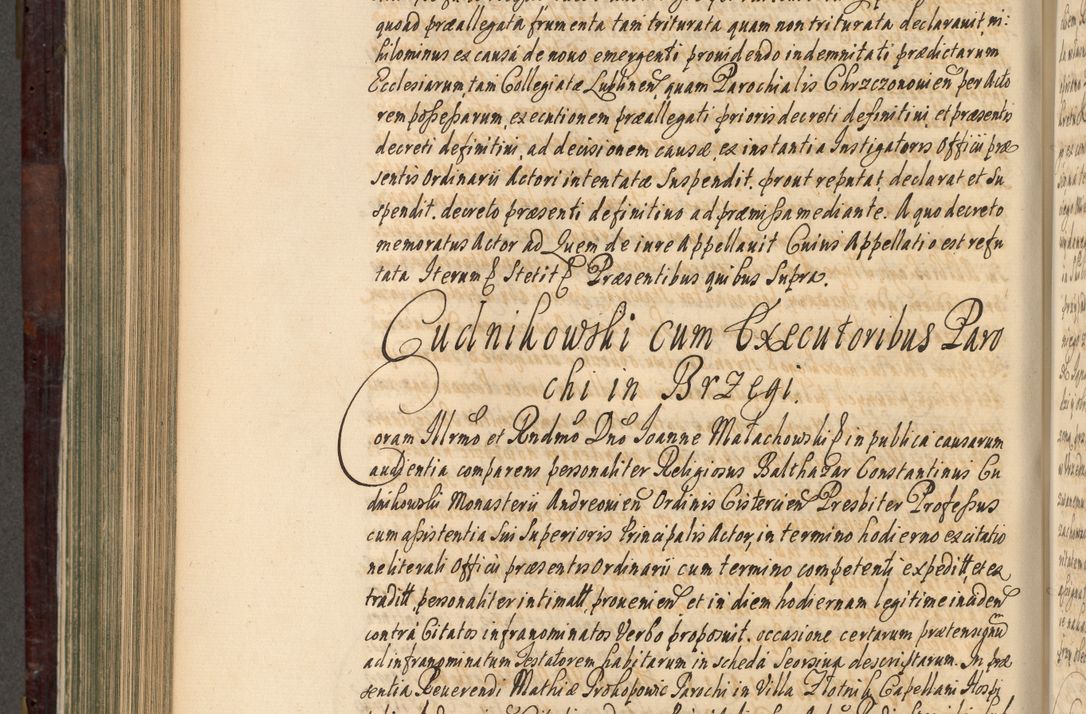 quoad præallegata frumenta tam triturata quam non triturata declarauit, ni:
hilominus ex causa de nouo emergenti prouidendo indemnitati prædictarum
Ecclesiarum, tam Collegiatæ Lublinen, quam Parochialis Chrzczonouien per Acto
rem possessarum, executionem præallegati prioris decreti definitiui, et præsentis
decreti definitiui, ad decisionem causæ, ex instantia Instigatoris Officii præ
sentis Ordinarii Actori intentatæ Suspendit, prout reputat, declarat et Su
spendit, decreto præsenti definitiuo ad præmissa mediante. A quo decreto
memoratus Actor ad Quem de iure Appellauit Cuius Appellatio est refu
tata Iterum Stetit Præsentibus quibus Supra.
Cudnikowski cum Executoribus Paro
chi in Brzegi.
Coram Illrmo et Rndmo Dno Ioanne Małachowski in publica causarum
audientia comparens personaliter Religiosus Balthazar Constantinus Cu
dnikowski Monasterii Andreouien Ordinis Cistercien Presbiter Professus
cum assistentia Sui Superioris Principalis Actor, in termino hodierno ex citatio
ne literali Officii præsentis Ordinarii cum termino competenti expeditt, et ex
traditt, personaliter intimatt, prouenien et in diem hodiernam legitime inciden
contrà Citatos infranominatos Verbo proposuit. occasione certarum prætensionum
ad infranominatum Testatorem habitarum in schedà Seorsiua descriptarum. In præ
sentia Reuerendi Mathiæ Prokopowic Parochi in Villa Złotnik, Capellani Hospi